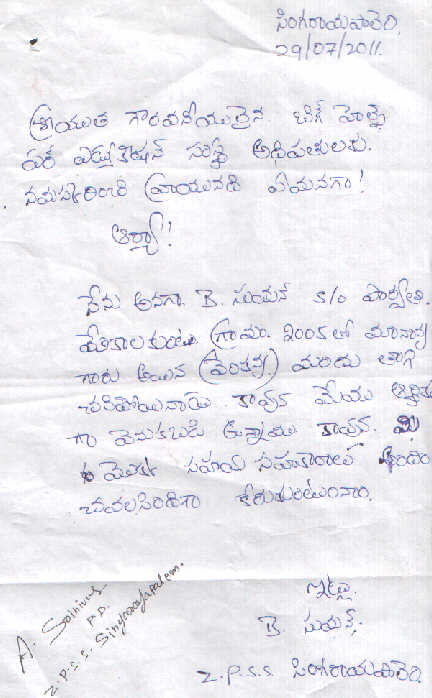 సింగరాయపాలెం,
29/07/2011.
శ్రీయుత గౌరవనీయులైన బిగ్ హెల్ప్
ఫర్ ఎడ్యుకేషన్ సంస్థ అధిపతులకు.
నమస్కరించి వ్రాయునది ఏమనగా!
ఆర్యా!
నేను అనగా B. సుమన్ S/o పార్వతి.
గ్రామం. 2005 లో మానాన్న
గారు అయిన మందు తాగి
చనిపోయినాడు. కావున మేము ఆర్థికం
గా వెనుకబడి ఉన్నాము కావున. మీ
యొక్క సహాయ సహకారాలు
చేయవలసిందిగా కోరుకుంటున్నాం.
ఇట్లా
B. సుమన్.
Z.P.S.S. సింగరాయపాలెం
A.
P.D.
Z.P.S.S. Singarayapalem.